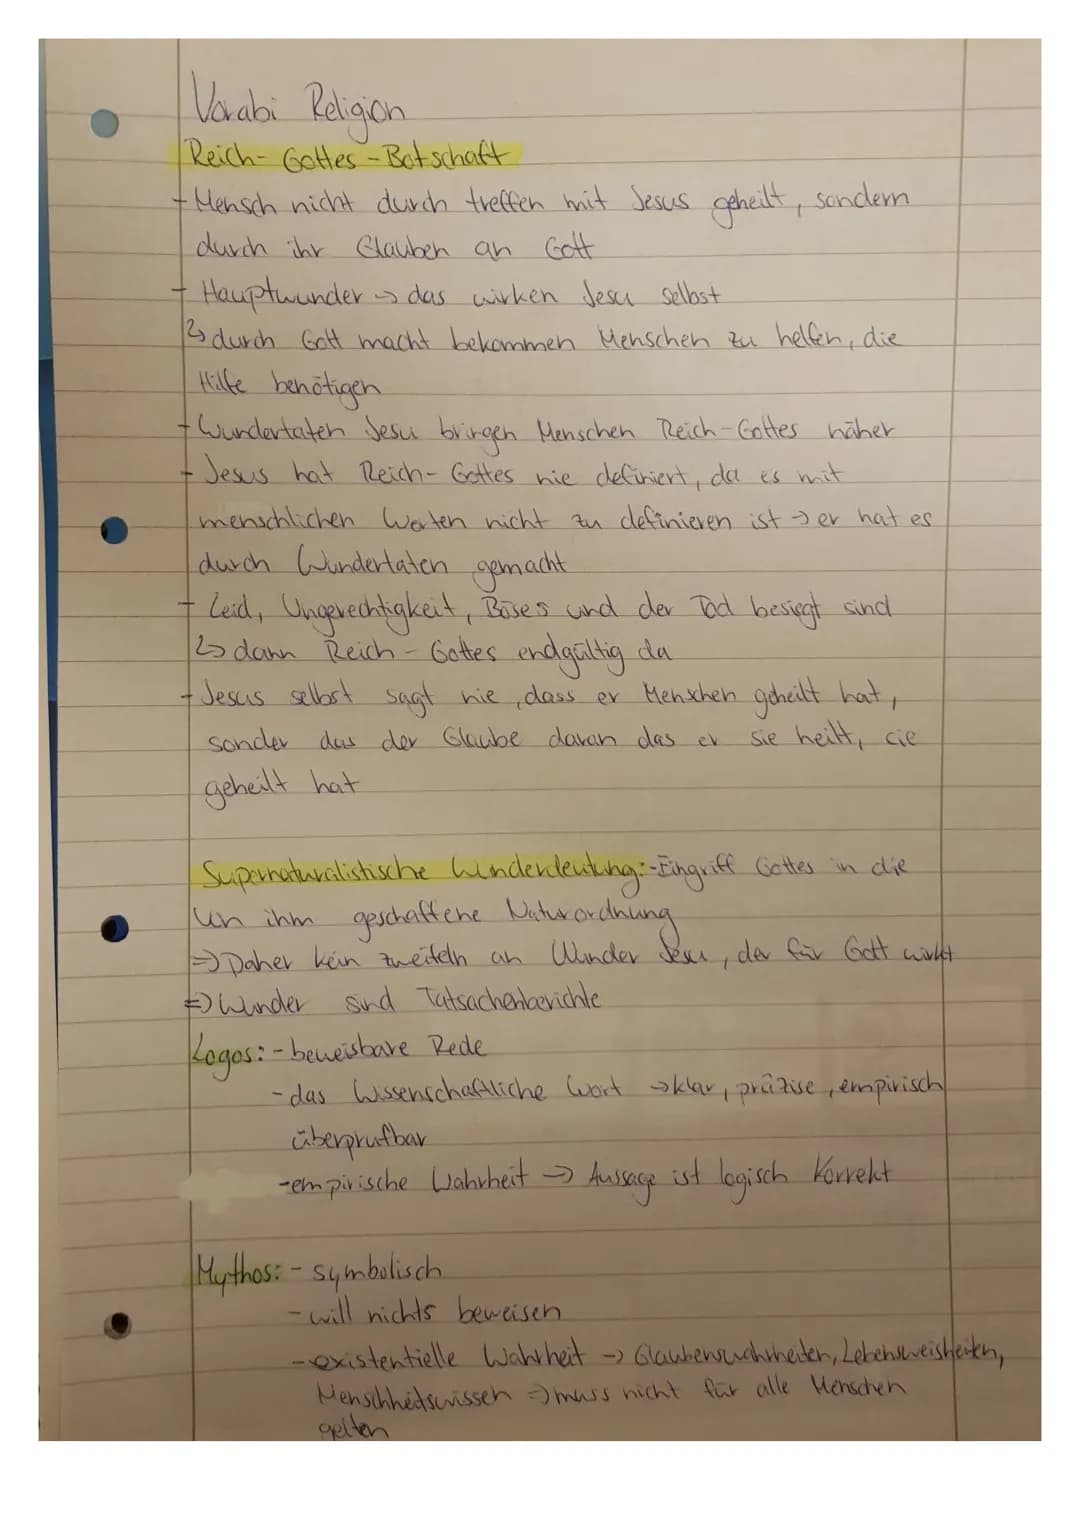 Vorabi Religion
Reich-Gottes-Botschaft
- Mensch nicht durch treffen mit Jesus geheilt, sondern
durch ihr Glauben an Gott
- Hauptwunder → das wirken Jesu selbst
↳ durch Gott macht bekommen Menschen zu helfen, die
Hilfe benötigen
- Wundertaten Jesu bringen Menschen Reich-Gottes näher
- Jesus hat Reich-Gottes nie definiert, da es mit
menschlichen Worten nicht zu definieren ist → er hat es
durch Wundertaten gemacht
- Leid, Ungerechtigkeit, Böses und der Tod besiegt sind
↳ dann Reich-Gottes endgültig da
- Jesus selbst sagt nie, dass er Menschen geheilt hat,
sonder das der Glaube daran das er sie heilt, sie
geheilt hat
Supernaturalistische Wunderdeutung: - Eingriff Gottes in die
von ihm geschaffene Naturordnung
⇒ Daher kein zweifeln an Wunder Jesu, der für Gott wirkt
⇒ Wunder sind Tatsachenberichte
Logos: - beweisbare Rede
- das Wissenschaftliche Wort → klar, präzise, empirisch
überprüfbar
- empirische Wahrheit → Aussage ist logisch korrekt
Mythos: - symbolisch
- will nichts beweisen
- existentielle Wahrheit → Glaubenswahrheiten, Lebensweisheiten,
Menschheitswissen ⇒ muss nicht für alle Menschen
gelten